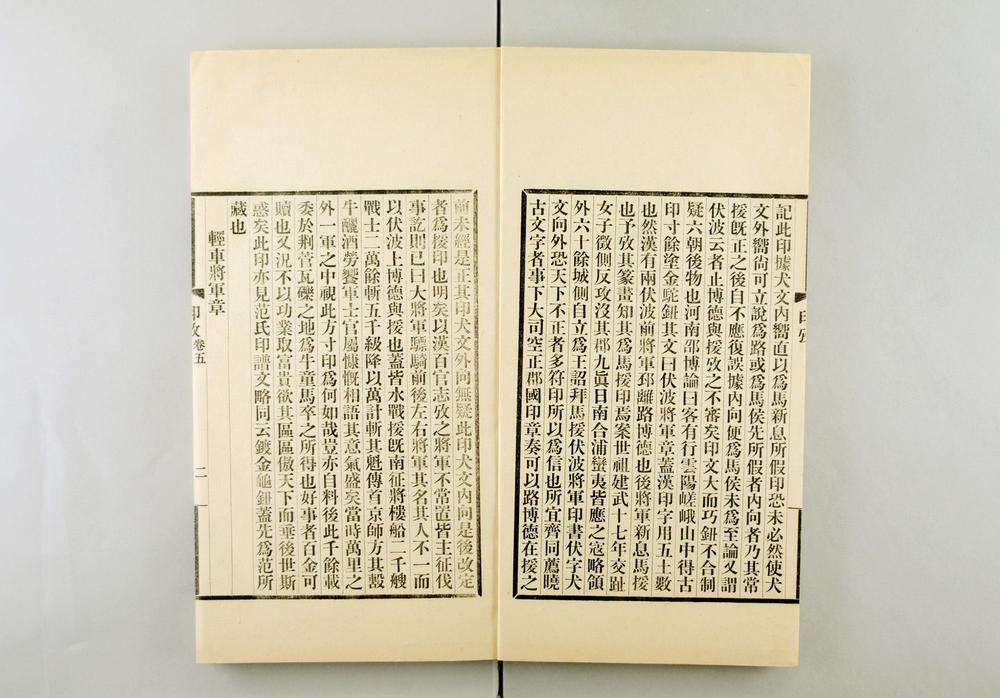 記此印據犬文內嚮直以爲馬新息所假印恐未必然使犬
文外嚮尙可立說爲路或爲馬侯先所假者內向者乃其常
援旣正之後自不應復誤據內向便爲馬侯未爲至論又謂
伏波云者止博德與援攷之不審矣印文大而巧鈕不合制
疑六朝後物也河南邵博論曰客有行雲陽嵯峨山中得古
印寸餘塗金駝鈕其文曰伏波將軍章蓋漢印字用五土數
也然漢有兩伏波前將軍邳離路博德也後將軍新息馬援
也予攷其篆畫知其爲馬援印焉案世祖建武十七年交趾
女子徵側反攻沒其郡九眞日南合浦蠻夷皆應之寇略領
外六十餘城側自立爲王詔拜馬援伏波將軍印書伏字犬
文向外恐天下不正者多符印所以爲信也所宜齊同薦曉
古文字者事下大司空正郡國印章奏可以路博德在援之
印攷
前未經是正其印犬文外向無疑此印犬文內向是後改定
者爲援印也明矣以漢百官志攷之將軍不常置皆主征伐
事訖則已曰大將軍驃騎前後左右將軍其名其人不一而
以伏波上博德與援也蓋皆水戰援旣南征將樓船二千艘
戰士二萬餘斬五千級降以萬計斬其魁傳首京師方其縠
牛釃酒勞饗軍士官屬慷慨相語其意氣盛矣當時萬里之
外一軍之中視此方寸印爲何如哉豈亦自料後此千餘載
委於荆菅瓦礫之地爲牛童馬卒之所得也好事者百金可
贖也又況不以功業取富貴欲其區區傲天下而垂後世斯
惑矣此印亦見范氏印譜文略同云鍍金龜鈕蓋先爲范所
藏也
輕車將軍章
印攷卷五
二